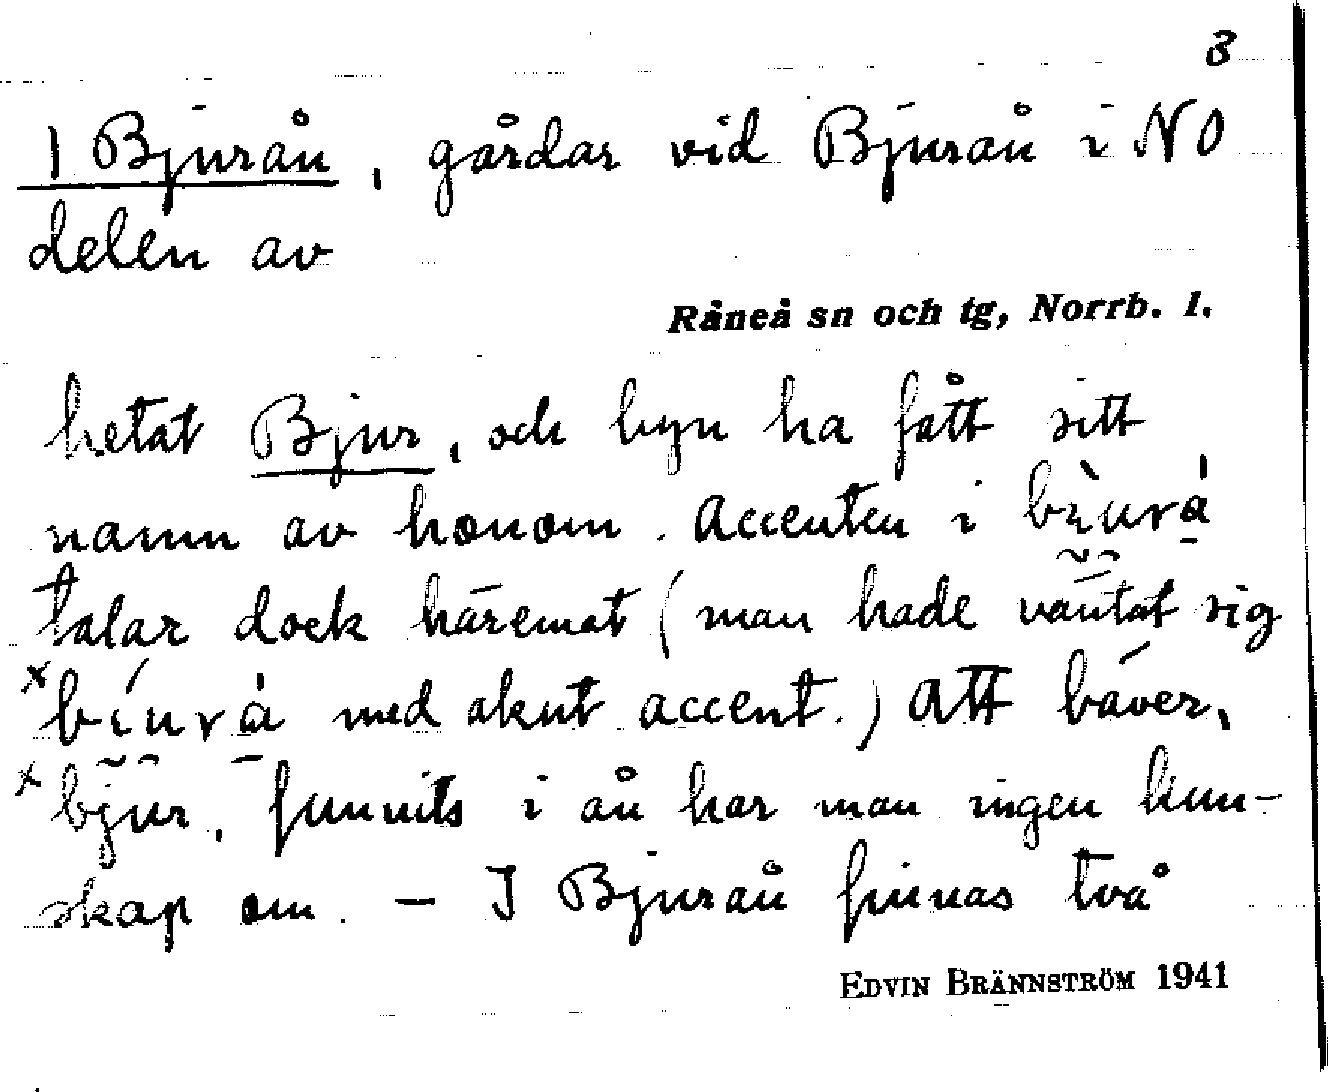 3
1 Bjurån, gårdar vid Bjurån i NO
delen av
Råneå sn och tg, Norrb. l.
hetat Bjur, och byn ha fått sitt
namn av honom. Accenten i bı̀urà
talar dock häremot (man hade väntat sig
×bíurà med akut accent.) Att bäver,
×bjur, funnits i ån har man ingen kun-
skap om. – I Bjurån finnas två
EDVIN BRÄNNSTRÖM 1941